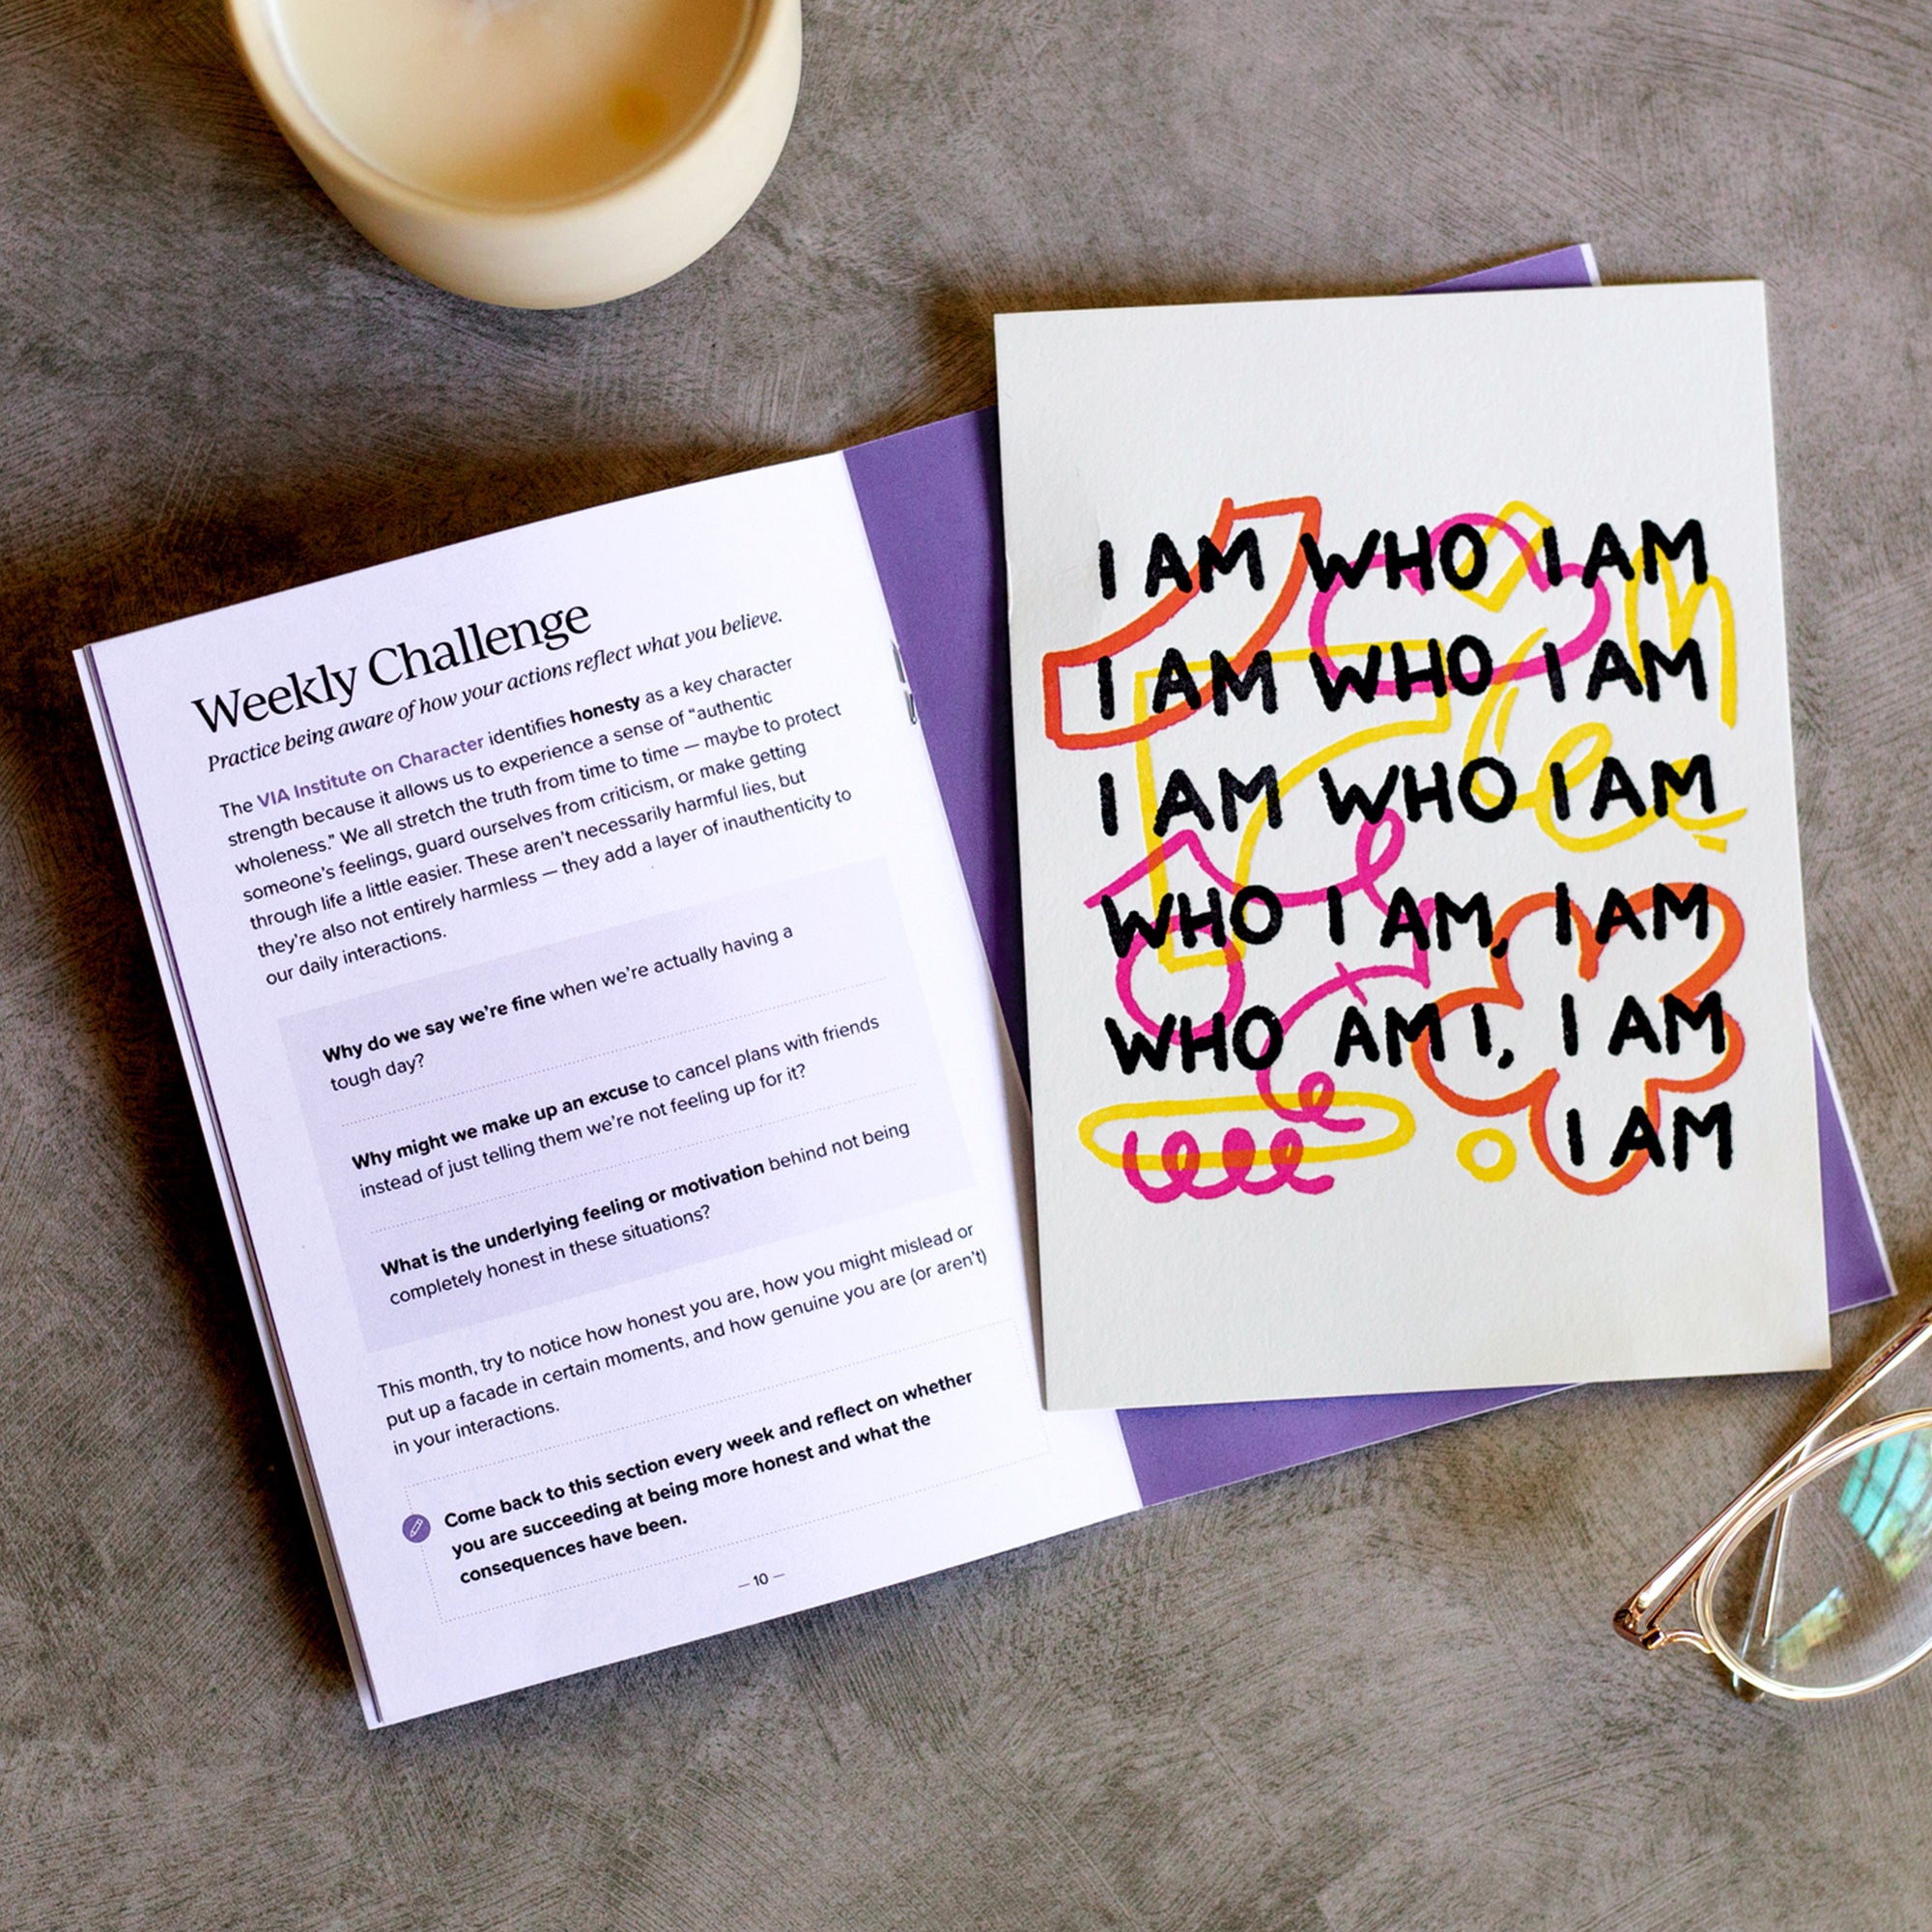 Weekly Challenge
Practice being aware of how your actions reflect what you believe.
The VIA Institute on Character identifies honesty as a key character
strength because it allows us to experience a sense of “authentic
wholeness.” We all stretch the truth from time to time — maybe to protect
someone’s feelings, guard ourselves from criticism, or make getting
through life a little easier. These aren’t necessarily harmful lies, but
they’re also not entirely harmless — they add a layer of inauthenticity to
our daily interactions.
Why do we say we’re fine when we’re actually having a
tough day?
Why might we make up an excuse to cancel plans with friends
instead of just telling them we’re not feeling up for it?
What is the underlying feeling or motivation behind not being
completely honest in these situations?
This month, try to notice how honest you are, how you might mislead or
put up a facade in certain moments, and how genuine you are (or aren’t)
in your interactions.
Come back to this section every week and reflect on whether
you are succeeding at being more honest and what the
consequences have been.
— 10 —
I AM WHO I AM
I AM WHO I AM
I AM WHO I AM
WHO I AM, I AM
WHO AM I, I AM
I AM